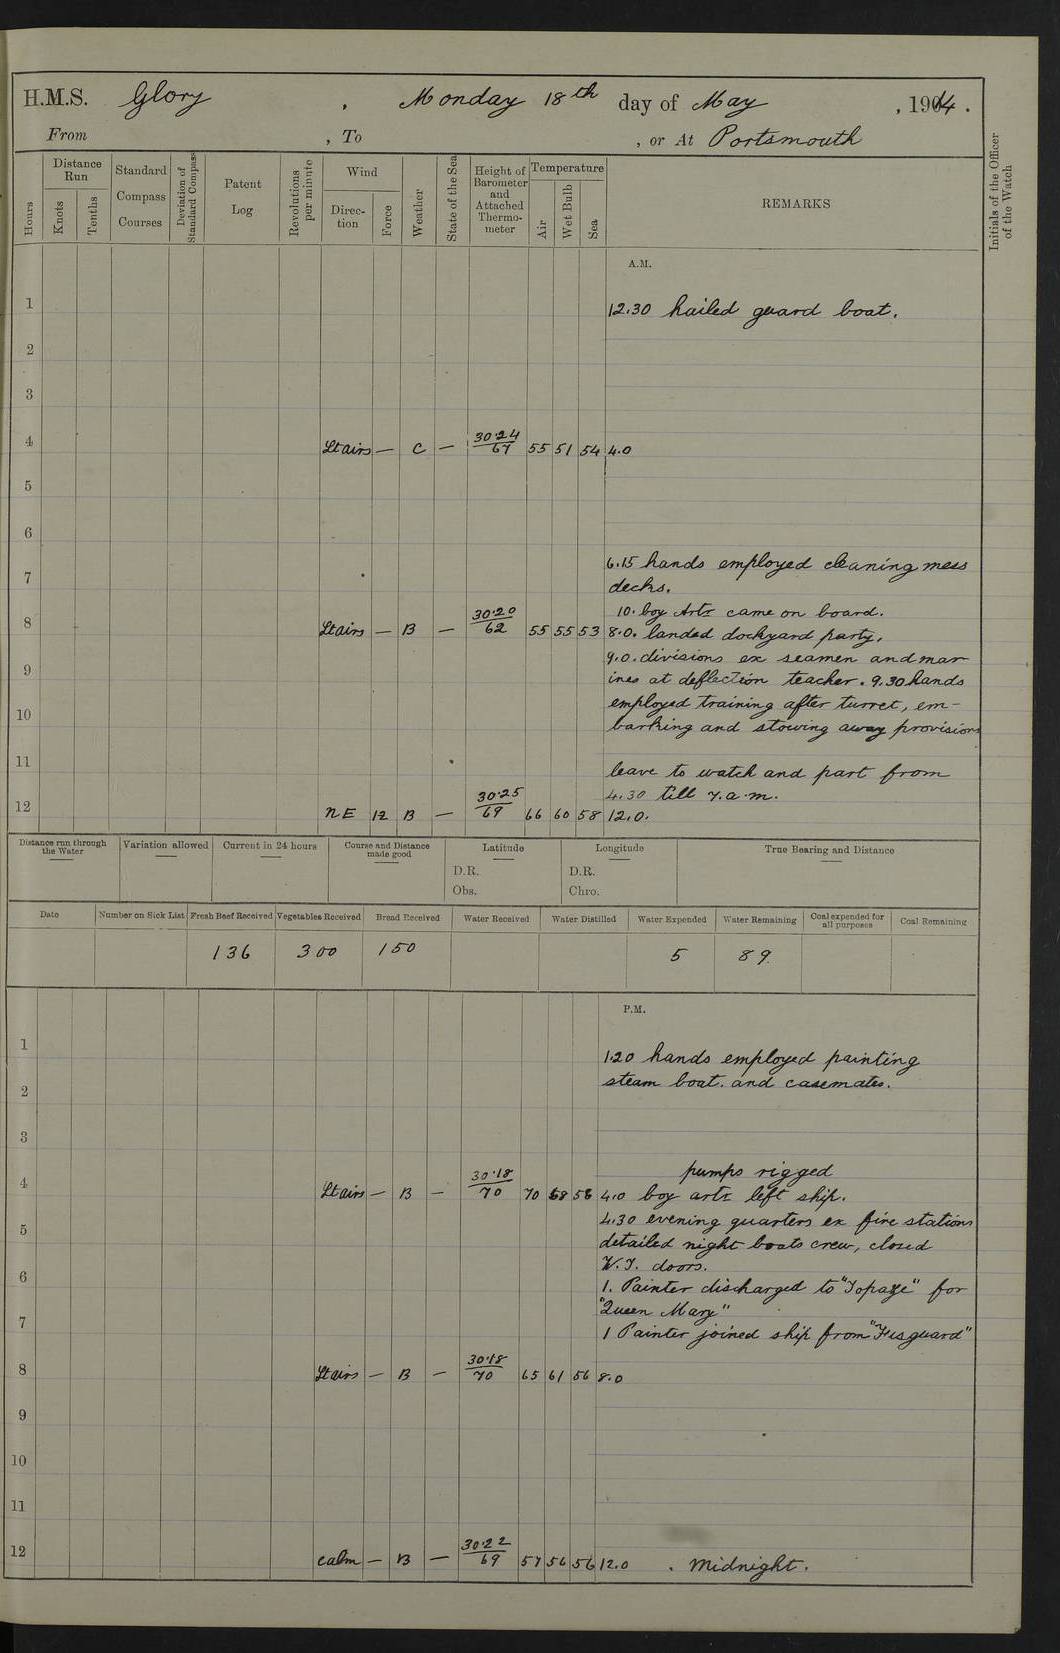 H.M.S. Glory , Monday 18th day of May , 1914 .
From , To , or At Portsmouth
Hours
Distance Run
Knots
Tenths
Standard Compass Courses
Deviation of Standard Compass
Patent Log
Revolutions per minute
Wind
Direc-tion
Force
Weather
State of the Sea
Height of Barometer and Attached Thermo-meter
Temperature
Air
Wet Bulb
Sea
REMARKS
Initials of the Officer of the Watch
A.M.
1
12.30 hailed guard boat.
2
3
4 Lt airs — C — 30·24/67 55 51 54 4.0
5
6
6.15 hands employed cleaning mess
7 decks.
10. boy Artr came on board.
8 Lt airs — B — 30·20/62 55 55 53 8.0. landed dockyard party.
9.0. divisions ex seamen and mar
9 ines at deflection teacher. 9.30 hands
employed training after turret, em-
10 barking and stowing away provisions
11 leave to watch and part from
4.30 till 7.a.m.
12 NE 12 B — 30·25/69 66 60 58 12.0.
Distance run through the Water
Variation allowed
Current in 24 hours
Course and Distance made good
Latitude
D.R.
Obs.
Longitude
D.R.
Chro.
True Bearing and Distance
Date
Number on Sick List
Fresh Beef Received
Vegetables Received
Bread Received
Water Received
Water Distilled
Water Expended
Water Remaining
Coal expended for all purposes
Coal Remaining
136 300 150 5 89
P.M.
1
1.20 hands employed painting
2 steam boat. and casemates.
3
pumps rigged
4 Lt airs — B — 30·18/70 70 68 58 4.0 boy artr left ship.
4.30 evening quarters ex fire stations
5 detailed night boats crew, closed
W.T. doors.
6 1. Painter discharged to "Topaze" for
"Queen Mary"
7 1 Painter joined ship from "Fisguard"
8 Lt airs — B — 30·18/70 65 61 56 8.0
9
10
11
12 calm — B — 30·22/69 57 56 56 12.0 . Midnight.